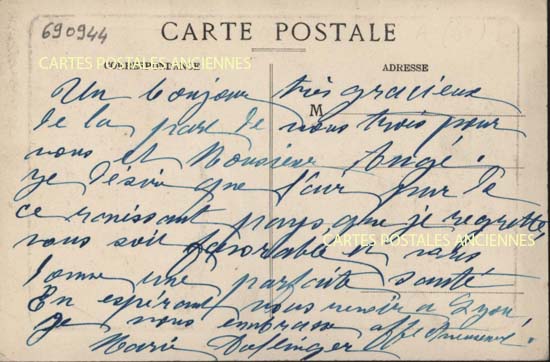 690944
CARTE POSTALE
CARTES POSTALES ANCIENNES
CORRESPONDANCE
ADRESSE
M
Un bonjour très gracieux
de la part de nous trois pour
vous et Monsieur Angé.
Je désire que l'air pur de
ce ravissant pays que je regrette
vous soit favorable et vous
CARTES POSTALES ANCIENNES
donne une parfaite santé
En espérant vous revoir à Lyon
je vous embrasse affectueusement
Marie